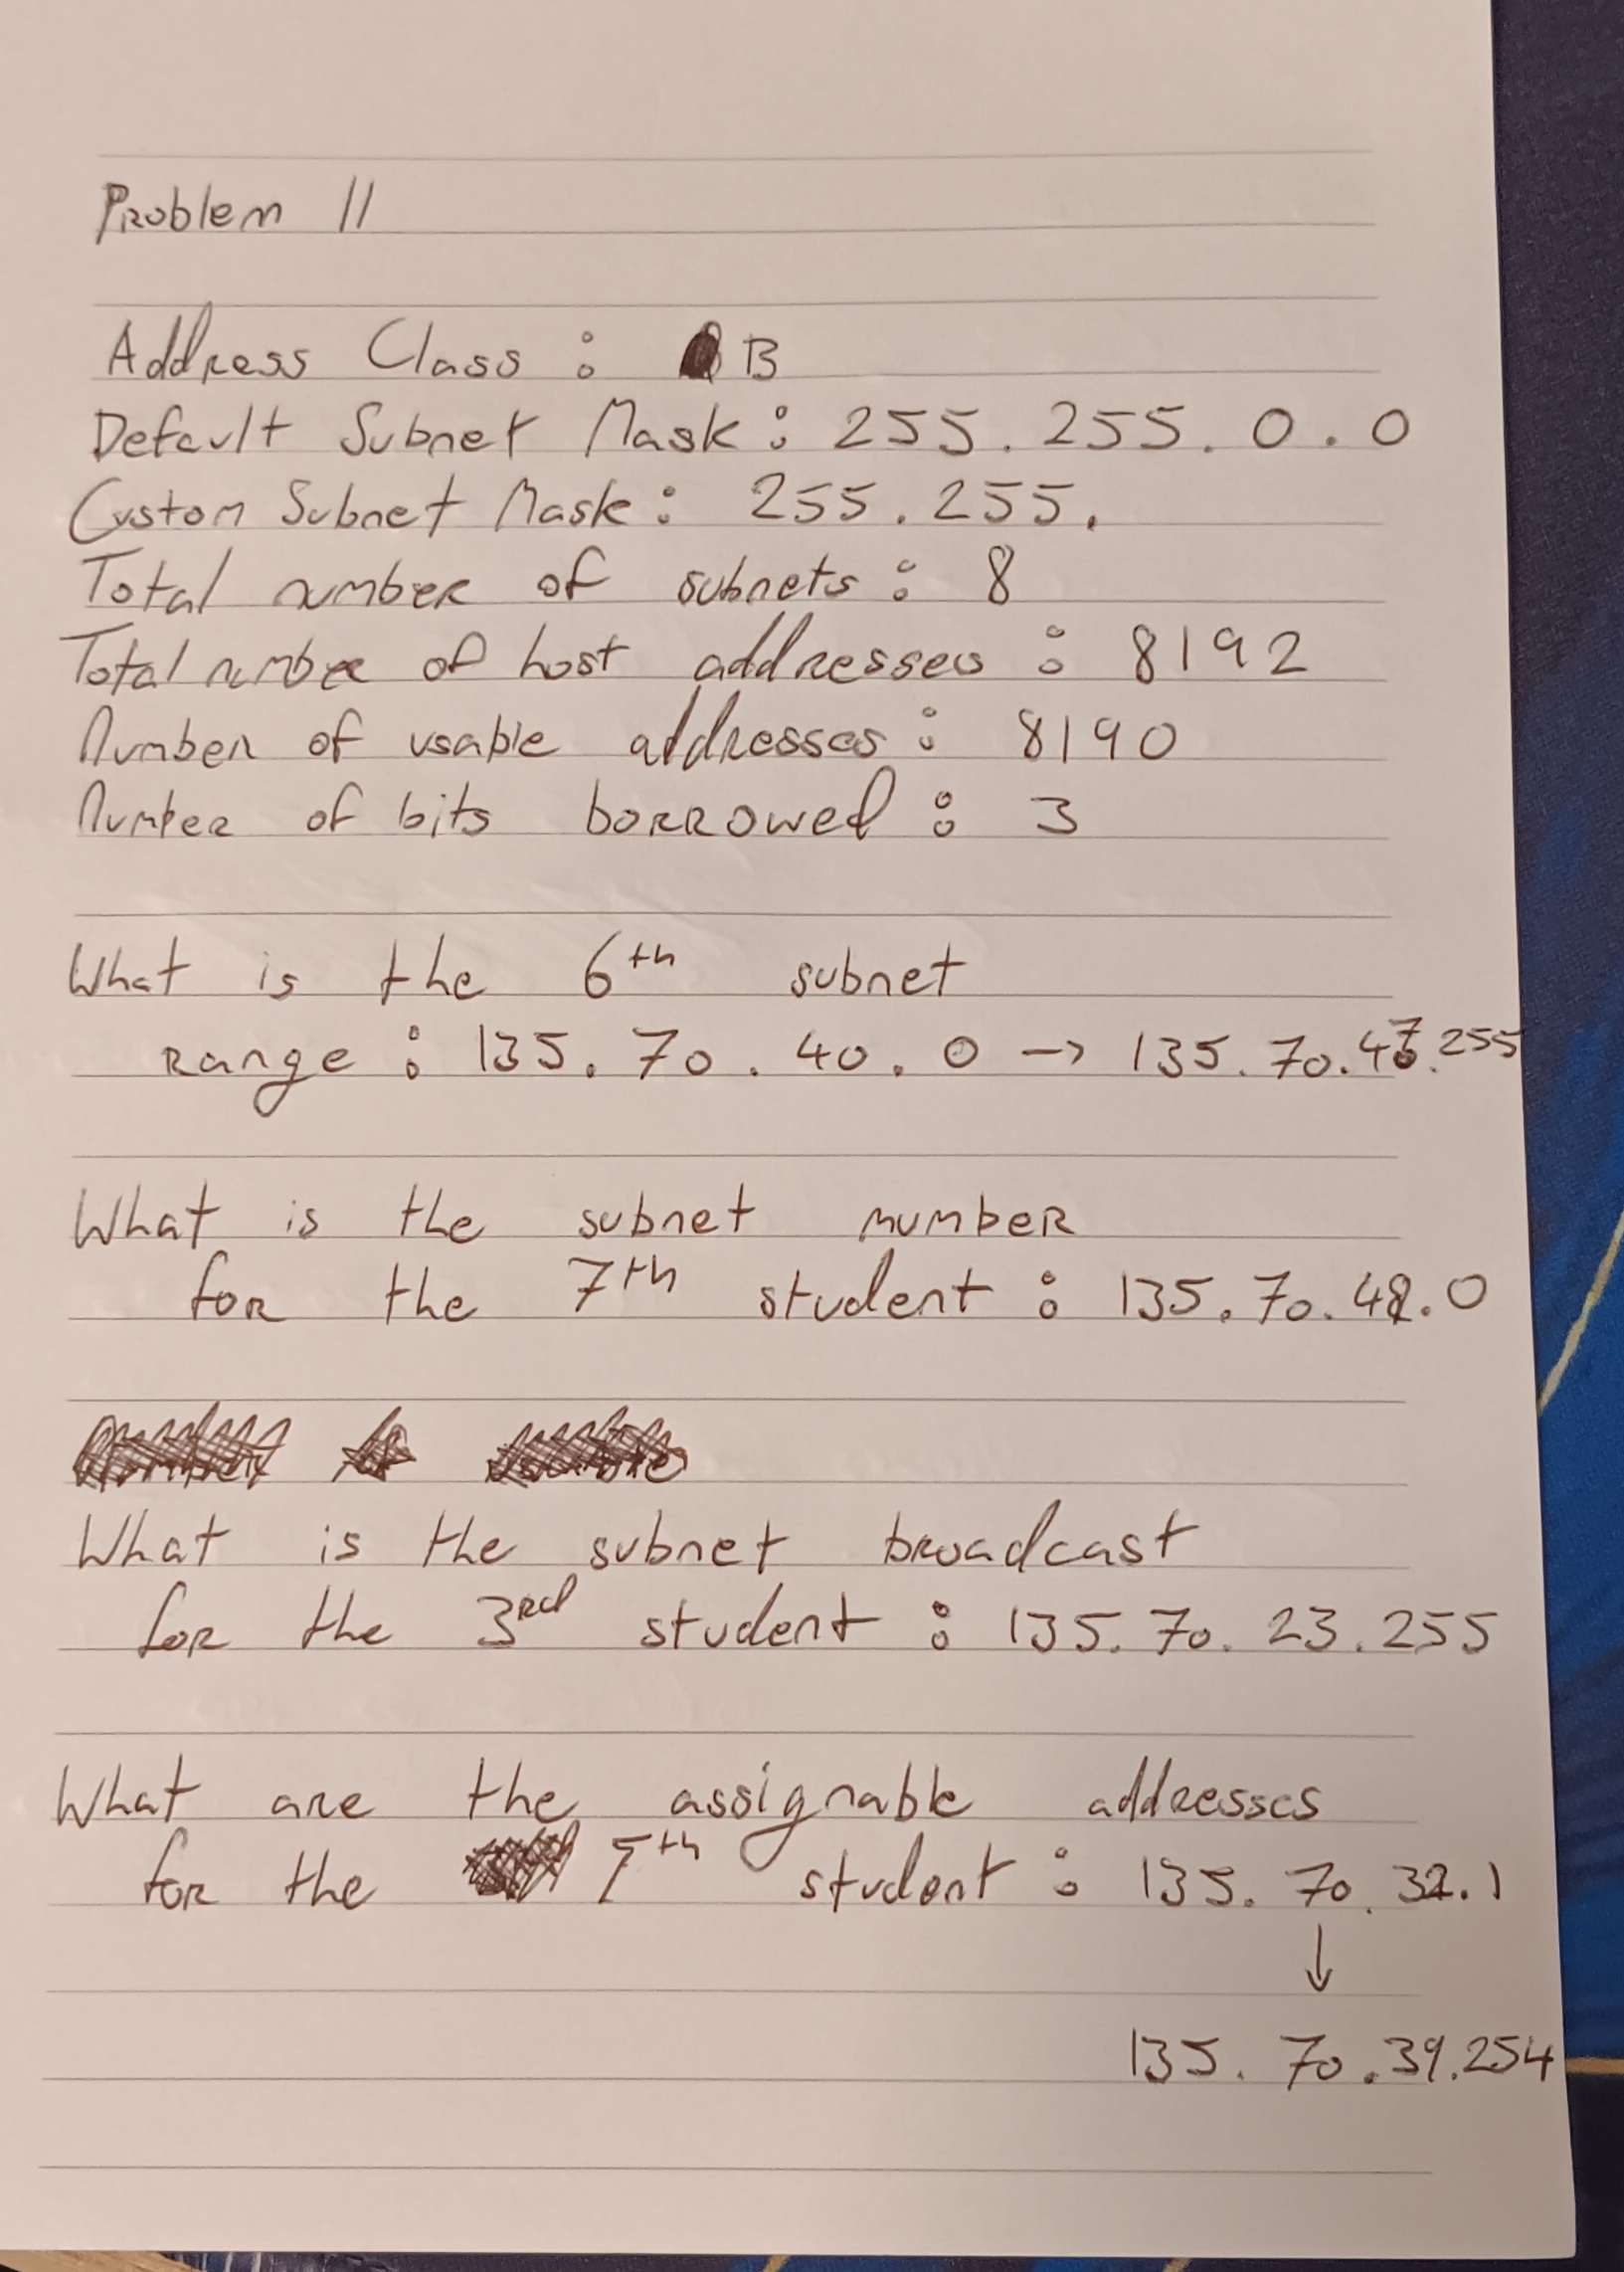 Problem 11
Address Class : B
Default Subnet Mask : 255.255.0.0
Custom Subnet Mask : 255.255.
Total number of subnets : 8
Total number of host addresses : 8192
Number of usable addresses : 8190
Number of bits borrowed : 3
What is the 6th subnet
range : 135.70.40.0 → 135.70.47.255
What is the subnet number
for the 7th student : 135.70.48.0
What is the subnet broadcast
for the 3rd student : 135.70.23.255
What are the assignable addresses
for the student : 135.70.32.1
↓
135.70.39.254